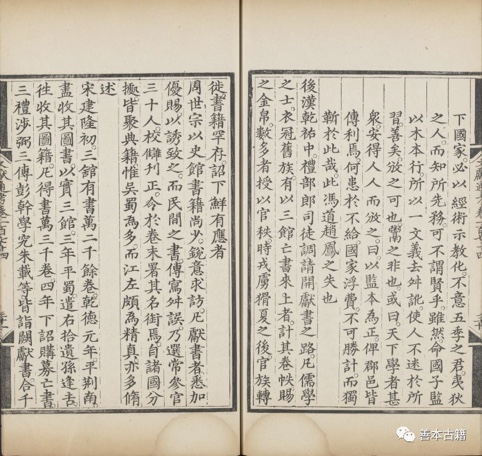 下國家必以經術示教化不意五季之君夷狄
之人而知所先務可不謂賢乎雖然命國子監
以木本行所以一文義去舛訛使人不迷於所
習善矣攽之可也鬻之非也或曰天下學者甚
衆安得人人而攽之曰以監本為正俾郡邑皆
傳刋焉何患於不給國家浮費不可勝計而獨
靳於此哉此馮道趙鳳之失也
後漢乾祐中禮部郎司徒調請開獻書之路凡儒學
之士衣冠舊族有以三館亡書來上者計其卷帙賜
之金帛數多者授以官秩時戎虜猾夏之後官族轉
徙書籍罕存詔下鮮有應者
周世宗以史館書籍尚少銳意求訪凡獻書者悉加
優賜以誘致之而民間之書傳寫舛誤乃選常參官
三十人校讎刋正令於卷末署其名銜焉自諸國分
據皆聚典籍惟吳蜀為多而江左頗為精真亦多脩
述
宋建隆初三館有書萬二千餘卷乾德元年平荆南
盡收其圖書以實三館三年平蜀遣右拾遺孫逢吉
往收其圖籍凡得書萬三千卷四年下詔購募亡書
三禮涉弼三傳彭幹學究朱載等皆詣闕獻書合千
善本古籍